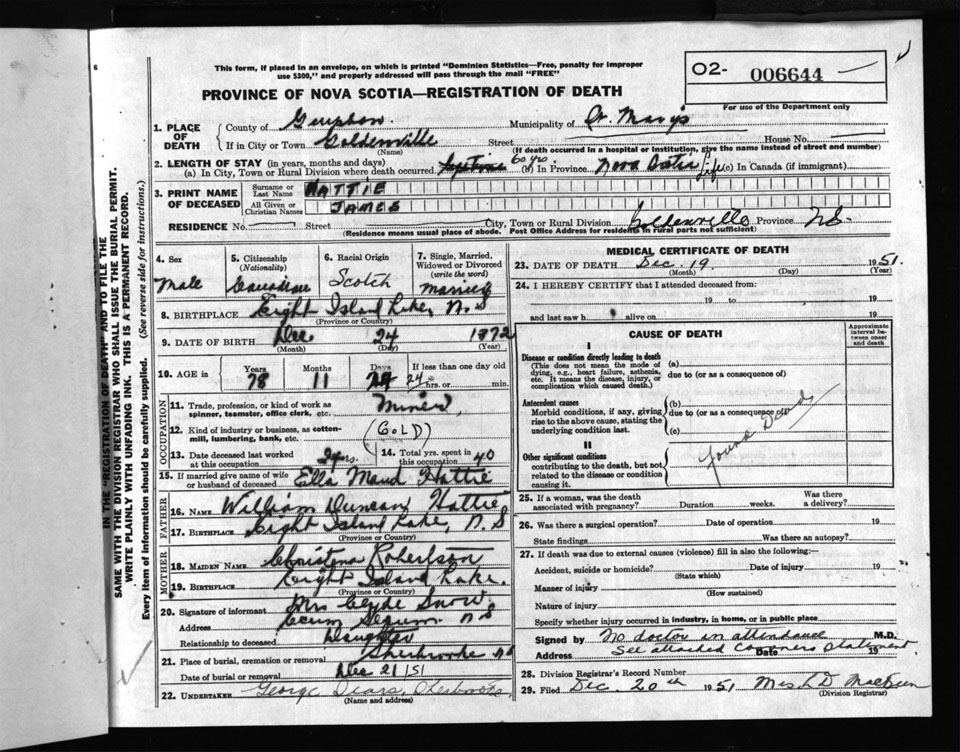 This form, if placed in an envelope, on which is printed "Dominion Statistics—Free, penalty for improper
use $300," and properly addressed will pass through the mail "FREE"
PROVINCE OF NOVA SCOTIA—REGISTRATION OF DEATH
O2- 006644
For use of the Department only
1. PLACE OF DEATH
County of Municipality of St. Mary's
If in City or Town Goldenville Street House No.
(Name) (If death occurred in a hospital or institution, give the name instead of street and number)
2. LENGTH OF STAY (in years, months and days)
(a) In City, Town or Rural Division where death occurred 60 yrs. (b) In Province Nova Scotia Life (c) In Canada (if immigrant)
3. PRINT NAME OF DECEASED
Surname or Last Name HATTIE
All Given or Christian Names JAMES
RESIDENCE No. Street City, Town or Rural Division Goldenville Province N.S.
(Residence means usual place of abode. Post Office Address for residents in rural parts not sufficient)
4. Sex Male
5. Citizenship (Nationality) Canadian
6. Racial Origin Scotch
7. Single, Married, Widowed or Divorced (write the word) Married
8. BIRTHPLACE Eight Island Lake, N.S
(Province or Country)
9. DATE OF BIRTH Dec 24 1872
(Month) (Day) (Year)
10. AGE in Years Months Days If less than one day old
78 11 24 hrs. or min.
OCCUPATION
11. Trade, profession, or kind of work as spinner, teamster, office clerk, etc. Miner
12. Kind of industry or business, as cotton-mill, lumbering, bank, etc. (GOLD)
13. Date deceased last worked at this occupation yrs.
14. Total yrs. spent in this occupation 40
15. If married give name of wife or husband of deceased Ella Maud Hattie
FATHER
16. NAME William Duncan Hattie
17. BIRTHPLACE Eight Island Lake, N.S
(Province or Country)
MOTHER
18. MAIDEN NAME Christena Robertson
19. BIRTHPLACE Eight Island Lake.
(Province or Country)
20. Signature of informant Mrs Clyde Snow
Address Ecum Secum N S
Relationship to deceased Daughter
21. Place of burial, cremation or removal Sherbrooke
Date of burial or removal Dec 21/51
22. UNDERTAKER George Sherbrooke
(Name and address)
MEDICAL CERTIFICATE OF DEATH
23. DATE OF DEATH Dec. 19 1951
(Month) (Day) (Year)
24. I HEREBY CERTIFY that I attended deceased from:
19 to , 19
and last saw h alive on , 19
CAUSE OF DEATH
Approximate interval between onset and death
I
Disease or condition directly leading to death (a)
(This does not mean the mode of dying, e.g., heart failure, asthenia, etc. It means the disease, injury, or complication which caused death.) due to (or as a consequence of)
Antecedent causes (b)
Morbid conditions, if any, giving rise to the above cause, stating the underlying condition last. due to (or as a consequence of)
(c)
Found Dead
II
Other significant conditions
contributing to the death, but not related to the disease or condition causing it.
25. If a woman, was the death associated with pregnancy? Duration weeks. Was there a delivery?
26. Was there a surgical operation? Date of operation 19
State findings Was there an autopsy?
27. If death was due to external causes (violence) fill in also the following:—
Accident, suicide or homicide? Date of injury 19
(State which)
Manner of injury
(How sustained)
Nature of injury
Specify whether injury occurred in industry, in home, or in public place
Signed by No doctor in attendance M.D.
Address See attached coroners statement. Date 19
28. Division Registrar's Record Number
29. Filed Dec. 20th 1951 Mrs
(Division Registrar)
IN THE "REGISTRATION OF DEATH" AND TO FILE THE
SAME WITH THE DIVISION REGISTRAR WHO SHALL ISSUE THE BURIAL PERMIT.
WRITE PLAINLY WITH UNFADING INK. THIS IS A PERMANENT RECORD.
Every item of information should be carefully supplied. (See reverse side for instructions.)